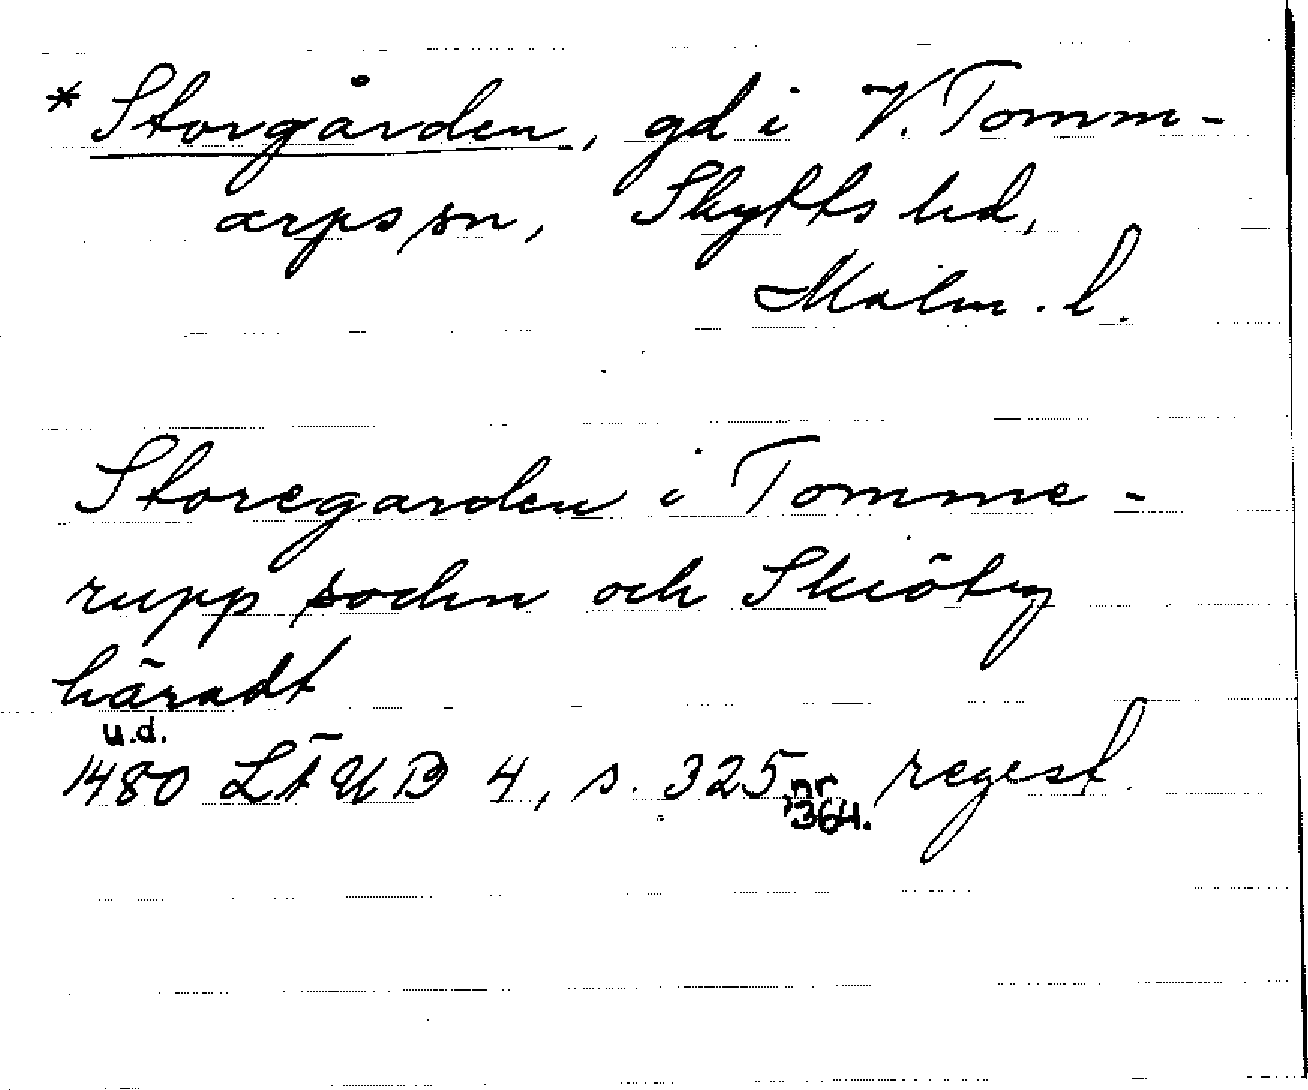 * Storgården, gd i V. Tomm-
arps sn, Skytts hd,
Malm. l.
Storegarden i Tomme-
rupp sochn och Skiöty
häradt
u.d.
1480 LÄUB 4, s. 325, nr 364. regest